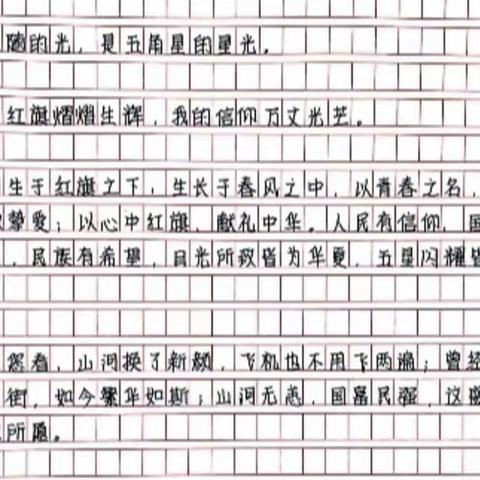 随的光，是五角星的星光。
红旗熠熠生辉，我的信仰万丈光芒。
生于红旗之下，生长于春风之中，以青春之名，
挚爱；以心中红旗，献礼中华。人民有信仰，国
，民族有希望，目光所致皆为华夏，五星闪耀皆
您看，山河换了新颜，飞机也不用飞两遍；曾经
街，如今繁华如斯；山河无恙，国富民强，这盛
所愿。